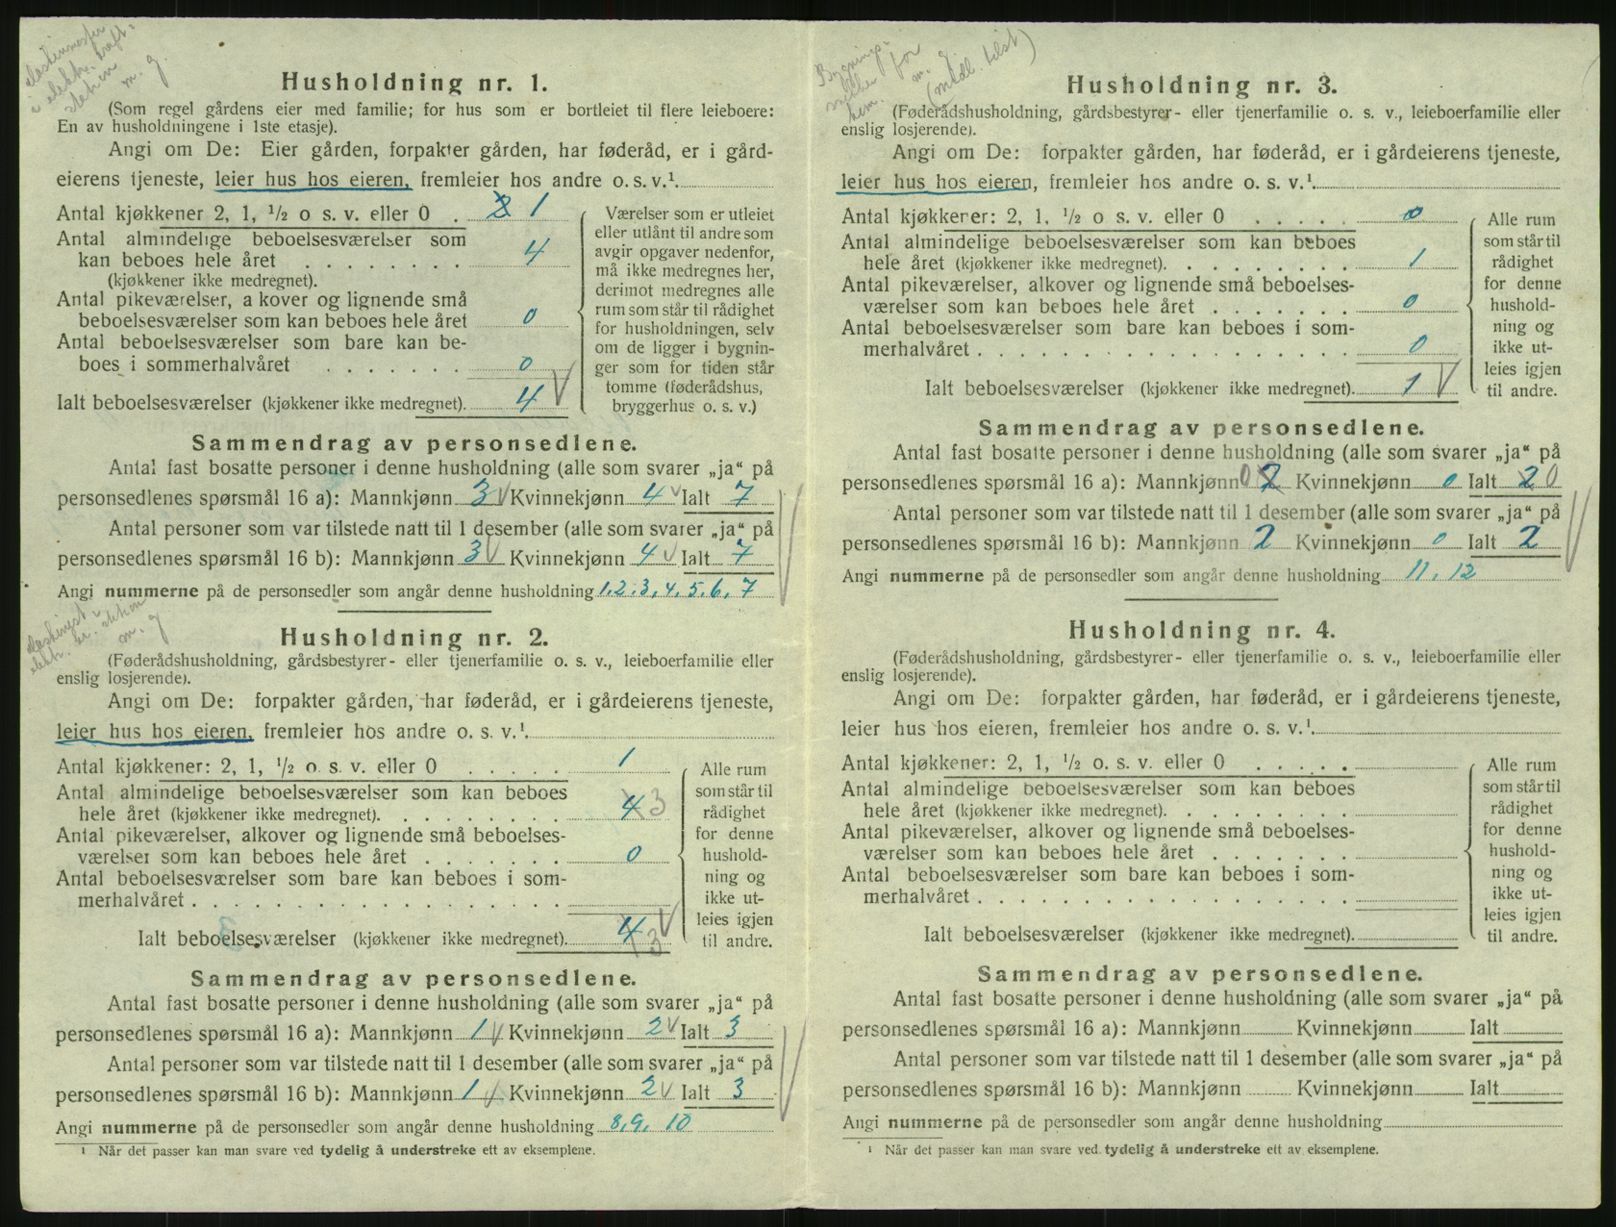 Husholdning nr. 1.
(Som regel gårdens eier med familie; for hus som er bortleiet til flere leieboere:
En av husholdningene i 1ste etasje).
Angi om De: Eier gården, forpakter gården, har føderåd, er i gård-
eierens tjeneste, leier hus hos eieren, fremleier hos andre o. s. v.¹
Antal kjøkkener 2, 1, ½ o s. v. eller 0 . 2 1
Antal almindelige beboelsesværelser som
kan beboes hele året . . . . . . . 4
(kjøkkener ikke medregnet).
Antal pikeværelser, a kover og lignende små
beboelsesværelser som kan beboes hele året 0
Antal beboelsesværelser som bare kan be-
boes i sommerhalvåret . . . . . . 0
Ialt beboelsesværelser (kjøkkener ikke medregnet). 4 √
Værelser som er utleiet
eller utlånt til andre som
avgir opgaver nedenfor,
må ikke medregnes her,
derimot medregnes alle
rum som står til rådighet
for husholdningen, selv
om de ligger i bygnin-
ger som for tiden står
tomme (føderådshus,
bryggerhus o. s. v.)
Sammendrag av personsedlene.
Antal fast bosatte personer i denne husholdning (alle som svarer „ja“ på
personsedlenes spørsmål 16 a): Mannkjønn 3 √ Kvinnekjønn 4 √ Ialt 7
Antal personer som var tilstede natt til 1 desember (alle som svarer „ja“ på
personsedlenes spørsmål 16 b): Mannkjønn 3 √ Kvinnekjønn 4 √ Ialt 7
Angi nummerne på de personsedler som angår denne husholdning 1, 2, 3, 4, 5, 6, 7
m. g
Husholdning nr. 2.
(Føderådshusholdning, gårdsbestyrer- eller tjenerfamilie o. s. v., leieboerfamilie eller
enslig losjerende).
Angi om De: forpakter gården, har føderåd, er i gårdeierens tjeneste,
leier hus hos eieren, fremleier hos andre o. s. v.¹
Antal kjøkkener: 2, 1, ½ o. s. v. eller 0 . . . . . 1
Antal almindelige beboelsesværelser som kan beboes
hele året (kjøkkener ikke medregnet). . . . . . . . . 4 3
Antal pikeværelser, alkover og lignende små beboelses-
værelser som kan beboes hele året . . . . . . . 0
Antal beboelsesværelser som bare kan beboes i som-
merhalvåret . . . . . . . . . . . . . . . . .
Ialt beboelsesværelser (kjøkkener ikke medregnet). 4 3 √
Alle rum
som står til
rådighet
for denne
hushold-
ning og
ikke ut-
leies igjen
til andre.
Sammendrag av personsedlene.
Antal fast bosatte personer i denne husholdning (alle som svarer „ja“ på
personsedlenes spørsmål 16 a): Mannkjønn 1 √ Kvinnekjønn 2 √ Ialt 3
Antal personer som var tilstede natt til 1 desember (alle som svarer „ja“ på
personsedlenes spørsmål 16 b): Mannkjønn 1 √ Kvinnekjønn 2 √ Ialt 3
Angi nummerne på de personsedler som angår denne husholdning 8, 9, 10
¹ Når det passer kan man svare ved tydelig å understreke ett av eksemplene.
m. g.
(midl. tilst)
Husholdning nr. 3.
(Føderådshusholdning, gårdsbestyrer- eller tjenerfamilie o. s. v., leieboerfamilie eller
enslig losjerende).
Angi om De: forpakter gården, har føderåd, er i gårdeierens tjeneste,
leier hus hos eieren, fremleier hos andre o. s. v.¹
Antal kjøkkener: 2, 1, ½ o s. v. eller 0 . . . . . 0
Antal almindelige beboelsesværelser som kan beboes
hele året (kjøkkener ikke medregnet). . . . . . . . . 1
Antal pikeværelser, alkover og lignende små beboelses-
værelser som kan beboes hele året . . . . . . . 0
Antal beboelsesværelser som bare kan beboes i som-
merhalvåret . . . . . . . . . . . . . . . . . 0
Ialt beboelsesværelser (kjøkkener ikke medregnet). 1 √
Alle rum
som står til
rådighet
for denne
hushold-
ning og
ikke ut-
leies igjen
til andre.
Sammendrag av personsedlene.
Antal fast bosatte personer i denne husholdning (alle som svarer „ja“ på
personsedlenes spørsmål 16 a): Mannkjønn 0 2 Kvinnekjønn 0 Ialt 2 0
Antal personer som var tilstede natt til 1 desember (alle som svarer „ja“ på
personsedlenes spørsmål 16 b): Mannkjønn 2 Kvinnekjønn 0 Ialt 2
Angi nummerne på de personsedler som angår denne husholdning 11, 12
Husholdning nr. 4.
(Føderådshusholdning, gårdsbestyrer- eller tjenerfamilie o. s. v., leieboerfamilie eller
enslig losjerende).
Angi om De: forpakter gården, har føderåd, er i gårdeierens tjeneste,
leier hus hos eieren, fremleier hos andre o. s. v.¹
Antal kjøkkener: 2, 1, ½ o. s. v. eller 0 . . . . .
Antal almindelige beboelsesværelser som kan beboes
hele året (kjøkkener ikke medregnet). . . . . . . . .
Antal pikeværelser, alkover og lignende små beboelses-
værelser som kan beboes hele året . . . . . . .
Antal beboelsesværelser som bare kan beboes i som-
merhalvåret . . . . . . . . . . . . . . . . .
Ialt beboelsesværelser (kjøkkener ikke medregnet).
Alle rum
som står til
rådighet
for denne
hushold-
ning og
ikke ut-
leies igjen
til andre.
Sammendrag av personsedlene.
Antal fast bosatte personer i denne husholdning (alle som svarer „ja“ på
personsedlenes spørsmål 16 a): Mannkjønn Kvinnekjønn Ialt
Antal personer som var tilstede natt til 1 desember (alle som svarer „ja“ på
personsedlenes spørsmål 16 b): Mannkjønn Kvinnekjønn Ialt
Angi nummerne på de personsedler som angår denne husholdning
¹ Når det passer kan man svare ved tydelig å understreke ett av eksemplene.